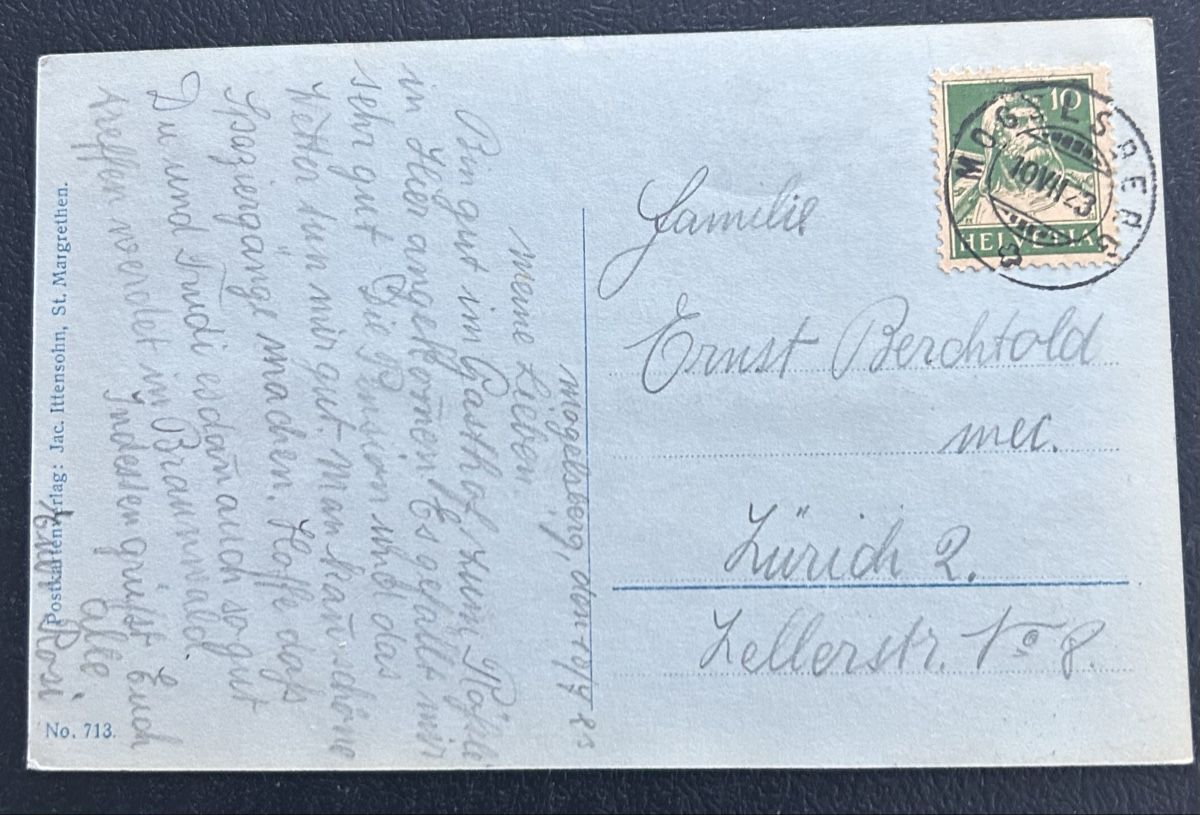 Mogelsberg, den 10/7 23
Meine Lieben!
Bin gut im Gasthof zum Rössli
in Hier angekom̄en. Es gefällt mir
sehr gut. Die Pension und das
Wetter tun mir gut. Man kan̄ schöne
Spaziergänge machen. Hoffe dass
Du und Trudi es dan̄ auch so gut
treffen werdet in Braunwald.
Indessen grüsst Euch
alle
Rosi
Postkartenverlag: Jac. Ittensohn, St. Margrethen.
No. 713.
10
HELVETIA
MOGELSBERG
10 VII 23
Familie
Ernst Berchtold
mec.
Zürich 2.
Zellerstr. No 8.